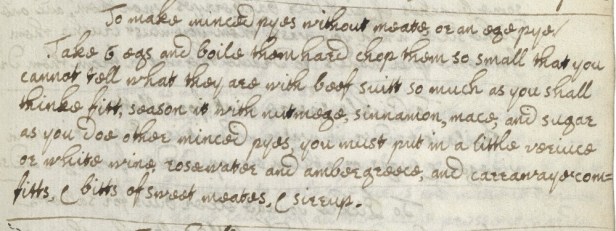 To make minced pyes without meate, or an egepye/
Take 6 egs and boile them hard chop them so small that you
cannot tell what they are with beef suitt so much as you shall
thinke fitt, season it with nutmege, sinnamon, mace, and sugar
as you doe other minced pyes, you must put in a little veriuce
or white wine, rosewater and ambergreece, and carrawaye com=
fitts, & bitts of sweet meates, & sirrup.